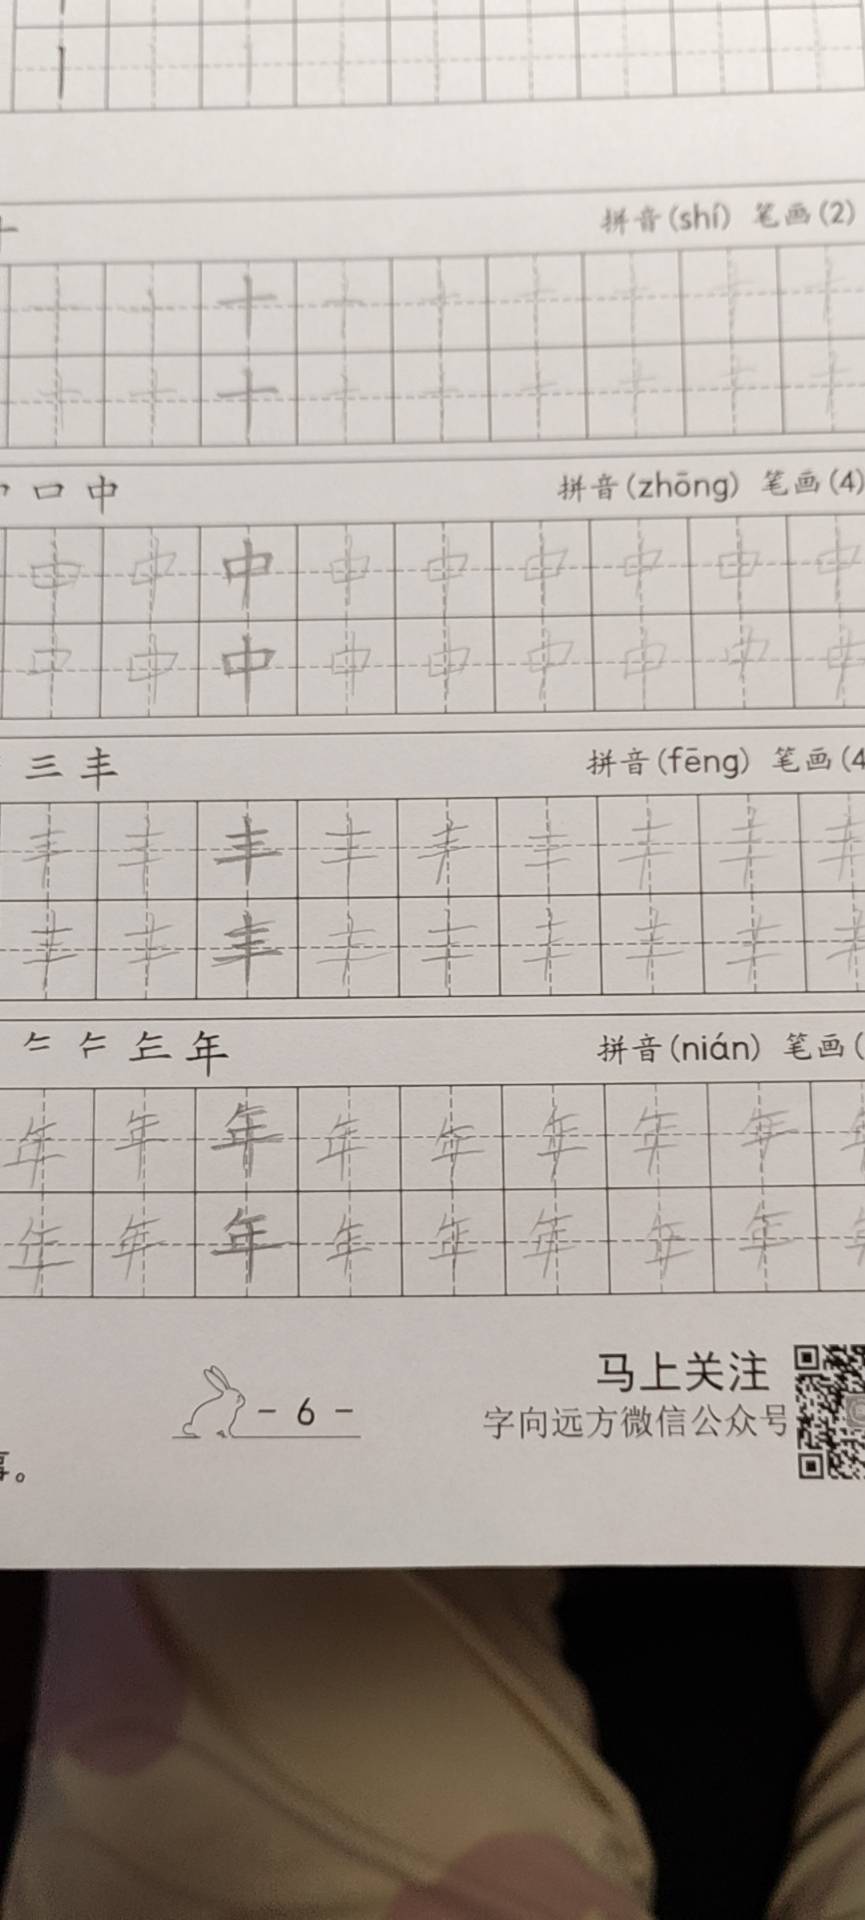 十
拼音(shí) 笔画(2)
十 十 十 十 十 十 十 十 十
十 十 十 十 十 十 十 十 十
口 中
拼音(zhōng) 笔画(4)
中 中 中 中 中 中 中 中 中
中 中 中 中 中 中 中 中 中
三 丰
拼音(fēng) 笔画(4
丰 丰 丰 丰 丰 丰 丰 丰 丰
丰 丰 丰 丰 丰 丰 丰 丰 丰
年
拼音(nián) 笔画(
年 年 年 年 年 年 年 年
年 年 年 年 年 年 年 年
马上关注
- 6 -
字向远方微信公众号